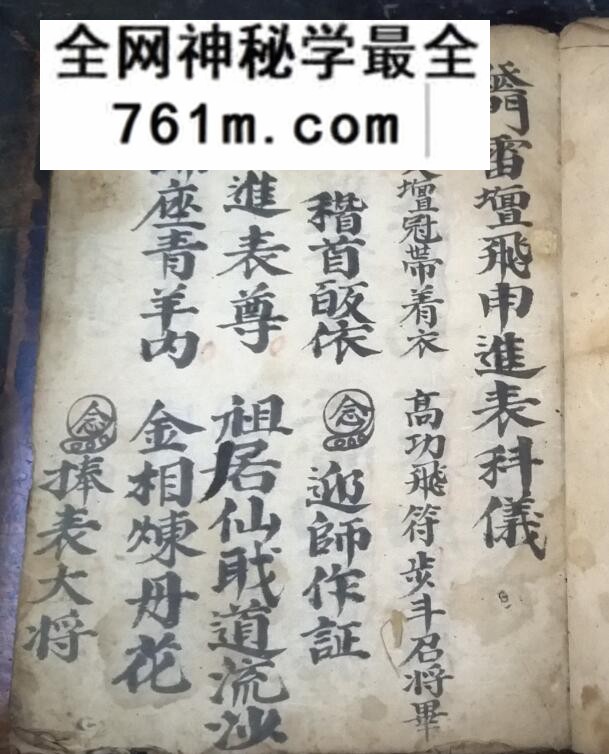 全网神秘学最全
761m.com
雷壇飛申進表科儀
壇冠帶着衣 高功飛符步斗召将畢
稽首皈依 念 迎師作証
進表尊 祖居仙戝道流沙
座青羊内 金相煉丹花
念 捧表大将